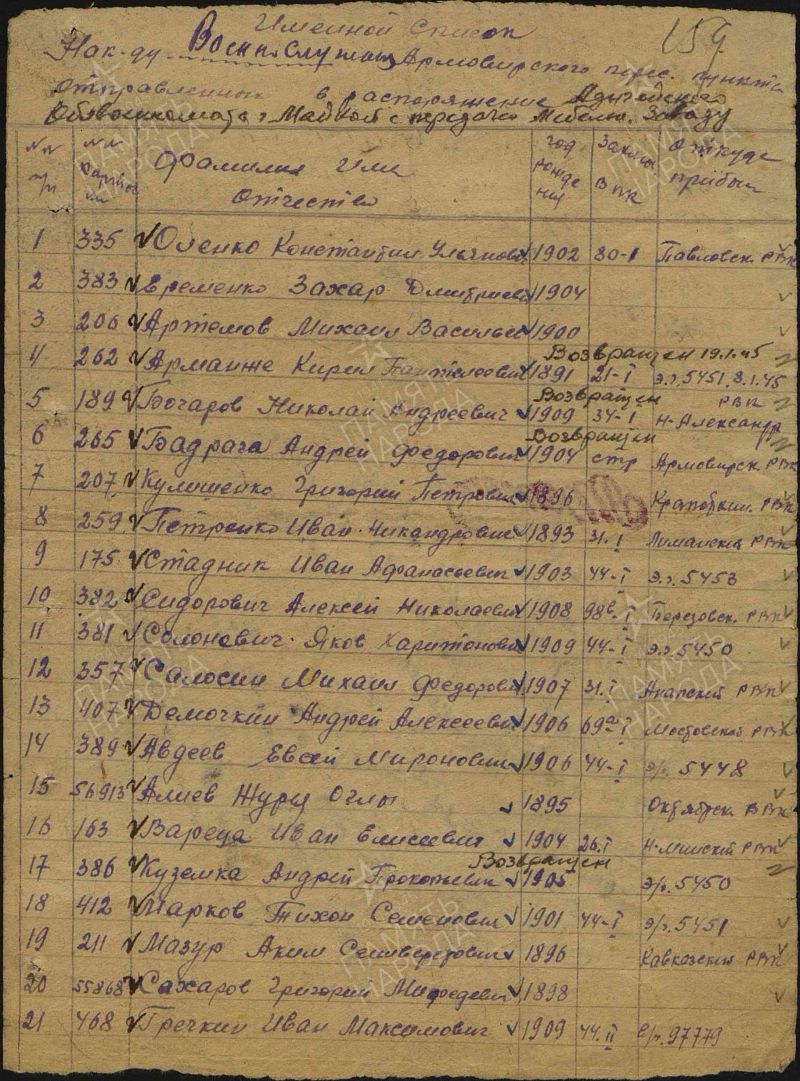 Именной список
159
Нак-ду Военнослужащ Армавирского перес. пункта
отправленных в распоряжение Адыгейского
Облвоенкомата г Майкоп с передачей Мебельн. Заводу
NN п/п NN Фамилия Имя Отчество год рождения Заключ ВПК Откуда прибыл
1 335 Юленко Константин Ульянович 1902 80-I Павловск. РВК
2 383 Еременко Захар Дмитриевич 1904
3 206 Артемов Михаил Василье 1900
Возвращен 19.1.45
4 262 Кирил Пантелеевич 1891 21-I э.г. 5451, 8.1.45
Возвращен РВК
5 189 Бочаров Николай Андреевич 1909 34-I Н-Александр
Возвращен
6 265 Бадрага Андрей Федорович 1904 стр Армавирск. РВК
7 207 Кулишенко Григорий Петрович 1896 Кропоткин. РВК
8 259 Петренко Иван Никандрович 1893 31.I Лиманский РВК
9 175 Стадник Иван Афанасьевич 1903 44-I э.г. 5453
10 382 Сидорович Алексей Николаевич 1908 98в-I Березовск. РВК
11 381 Солоневич Яков Харитонович 1909 44-I э.г. 5450
12 357 Салосин Михаил Федорович 1907 31.I Анапский РВК
13 407 Демочкин Андрей Алексеевич 1906 69а-I Мостовской РВК
14 389 Авдеев Евсей Миронович 1906 44-I э/г. 5448
15 56913 Алиев Оглы 1895 Октябрск. РВК
16 163 Вареца Иван Елисеевич 1904 26.I РВК
Возвращен
17 386 Куземка Андрей Прокопьевич 1905 э/г. 5450
18 412 Марков Тихон Семенович 1901 44-I э/г. 5451
19 211 Мазур Аким 1896 Кавказский РВК
20 55868 Сахаров Григорий 1898
21 468 Гречкин Иван Максимович 1909 44.II 97779
ПАМЯТЬ НАРОДА